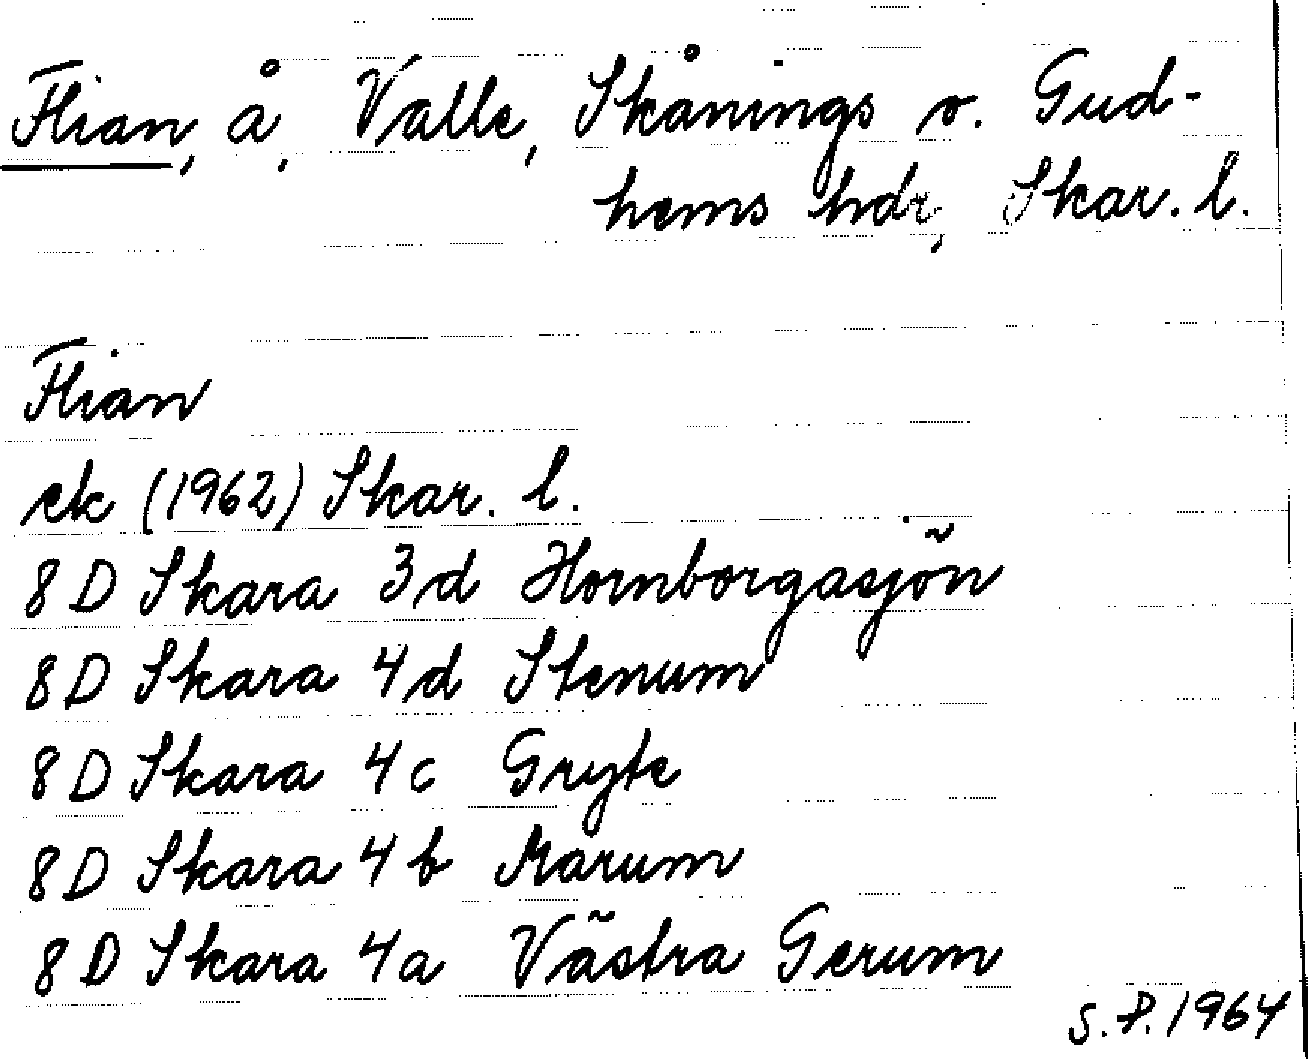 Flian, å, Valle, Skånings o. Gud-
hems hdr, Skar. l.
Flian
ek (1962) Skar. l.
8 D Skara 3d Hornborgasjön
8 D Skara 4d Stenum
8 D Skara 4c Gryte
8 D Skara 4b Marum
8 D Skara 4a Västra Gerum
S.P. 1964